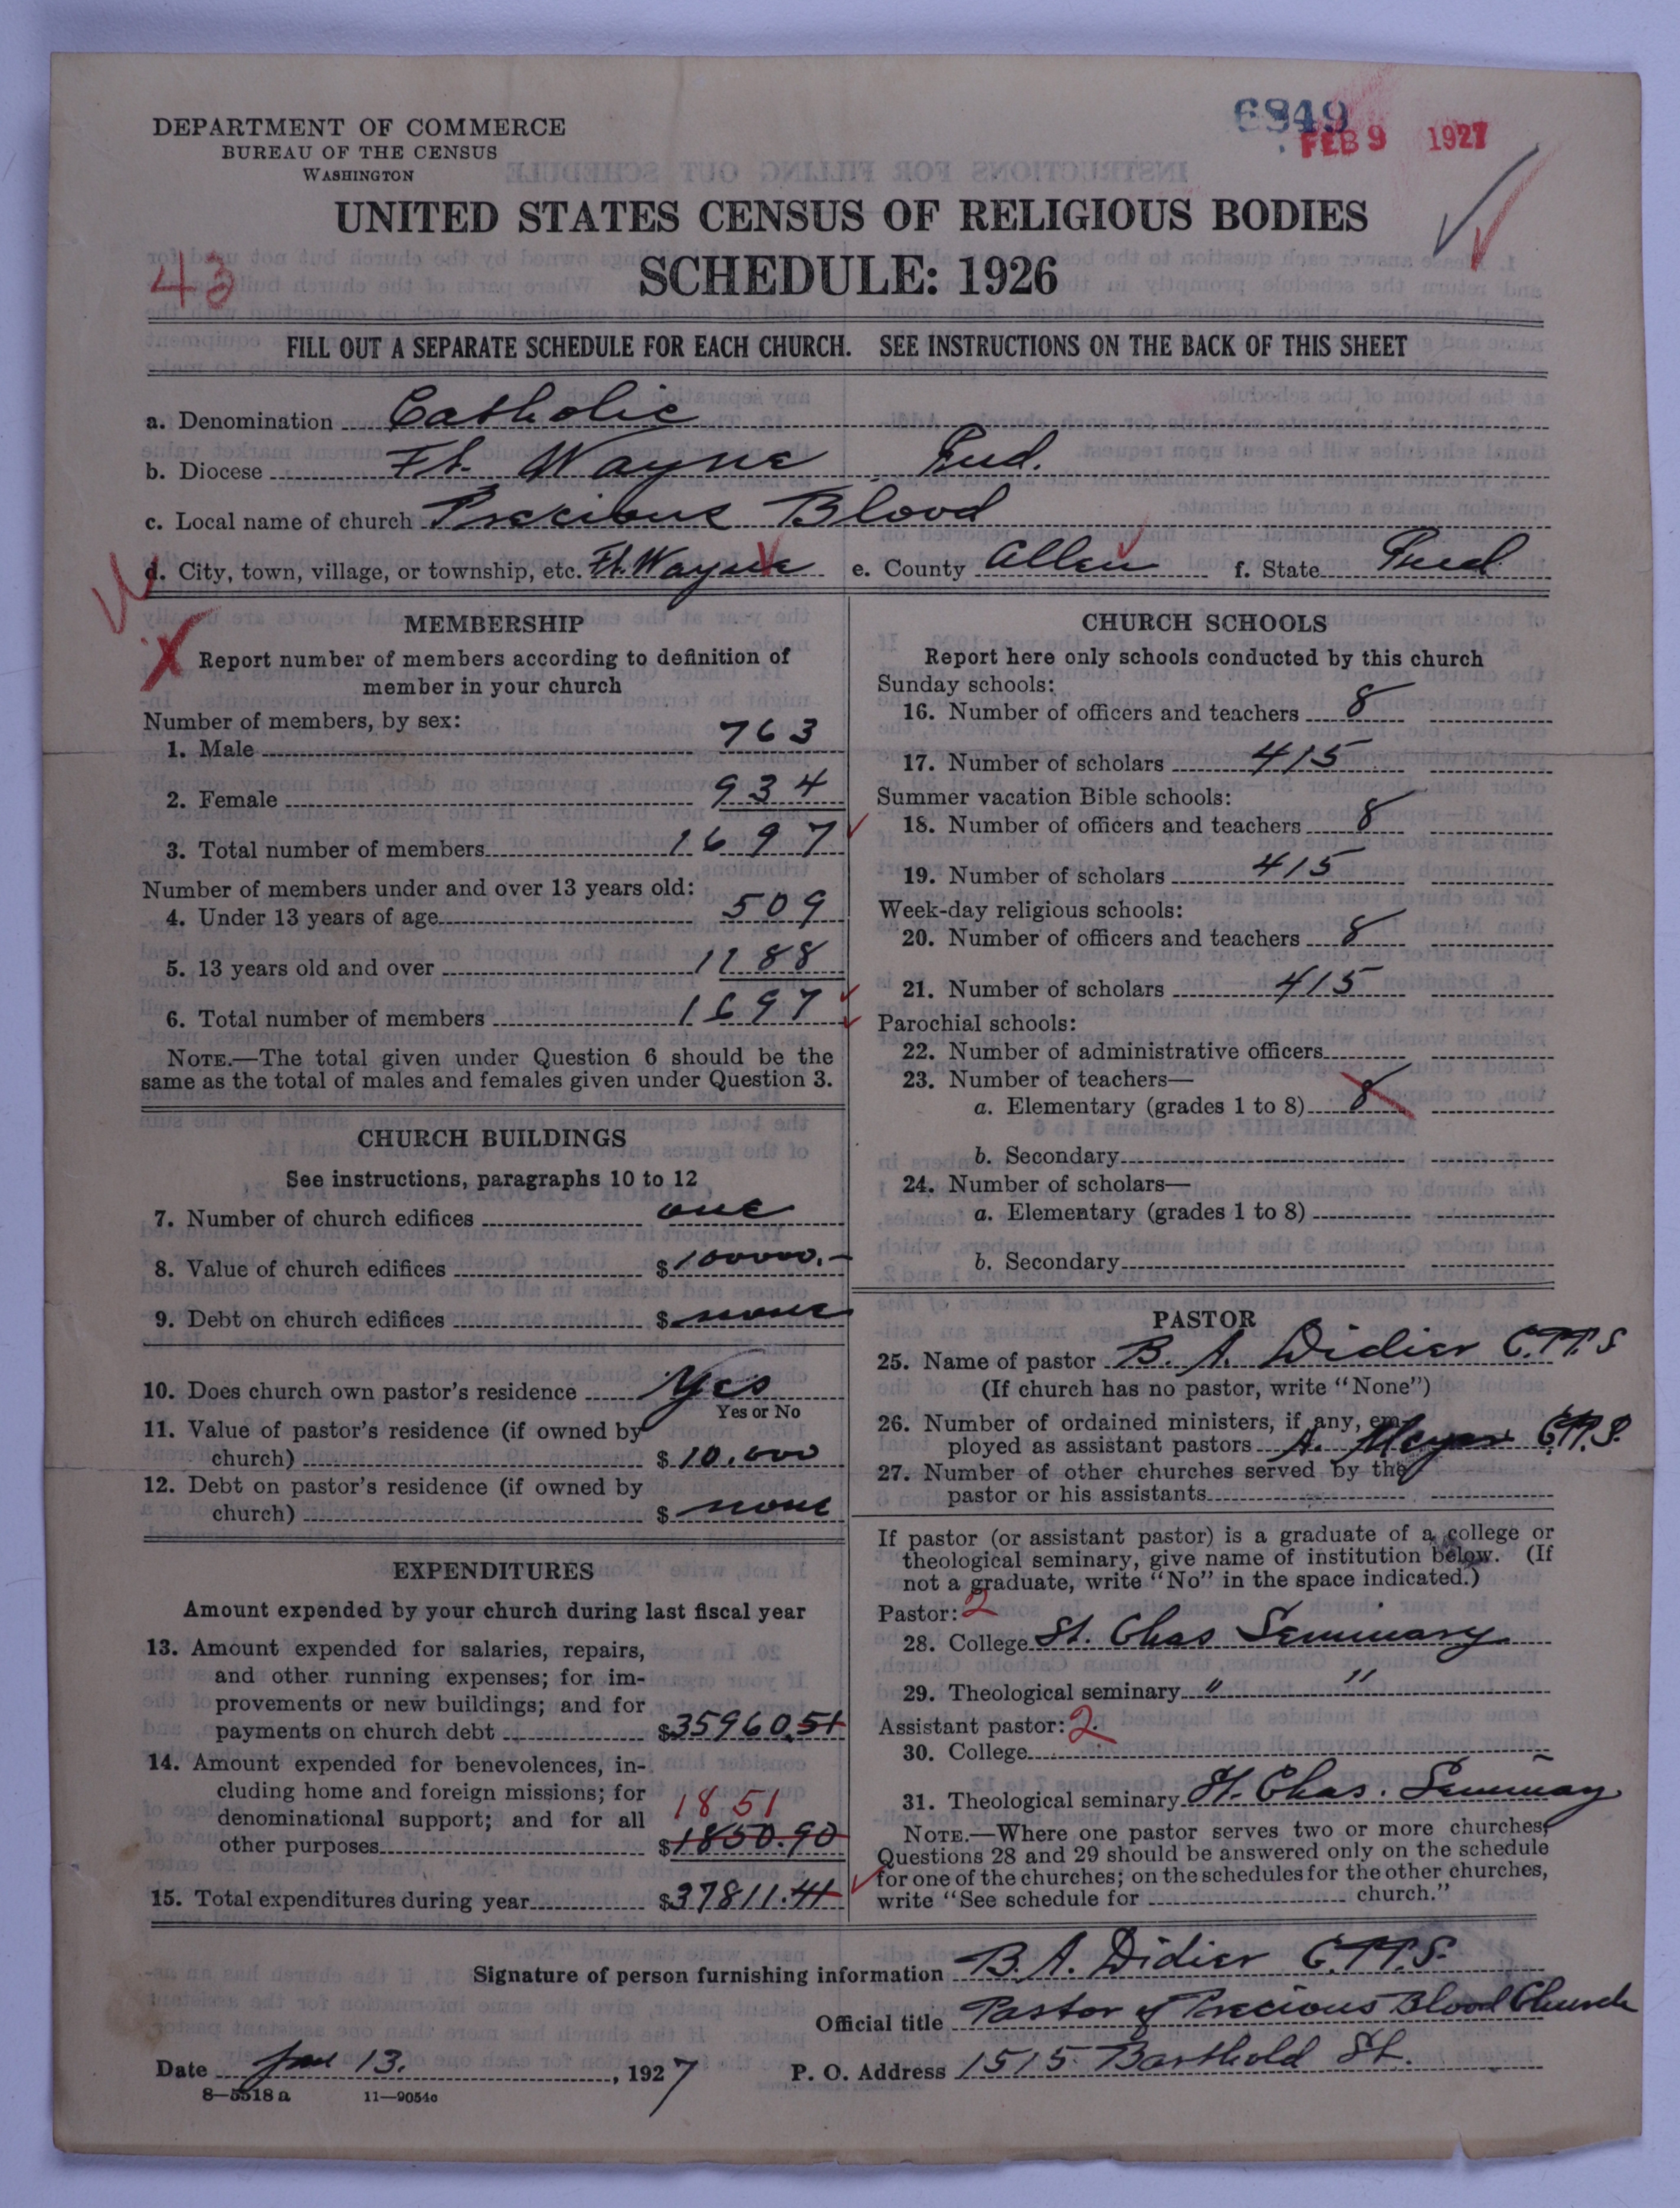 6849
FEB 9 1927
DEPARTMENT OF COMMERCE
BUREAU OF THE CENSUS
WASHINGTON
UNITED STATES CENSUS OF RELIGIOUS BODIES
43
SCHEDULE: 1926
FILL OUT A SEPARATE SCHEDULE FOR EACH CHURCH. SEE INSTRUCTIONS ON THE BACK OF THIS SHEET
a. Denomination Catholic
b. Diocese Ft. Wayne Ind.
c. Local name of church Precious Blood
d. City, town, village, or township, etc. Ft. Wayne e. County Allen f. State Ind
MEMBERSHIP
Report number of members according to definition of
member in your church
Number of members, by sex:
1. Male 763
2. Female 934
3. Total number of members 1697
Number of members under and over 13 years old:
4. Under 13 years of age 509
5. 13 years old and over 1188
6. Total number of members 1697
NOTE.—The total given under Question 6 should be the
same as the total of males and females given under Question 3.
CHURCH BUILDINGS
See instructions, paragraphs 10 to 12
7. Number of church edifices one
8. Value of church edifices $100000.-
9. Debt on church edifices $ none
10. Does church own pastor's residence Yes
Yes or No
11. Value of pastor's residence (if owned by
church) $ 10.000
12. Debt on pastor's residence (if owned by
church) $ none
EXPENDITURES
Amount expended by your church during last fiscal year
13. Amount expended for salaries, repairs,
and other running expenses; for im-
provements or new buildings; and for
payments on church debt $35960.51
14. Amount expended for benevolences, in-
cluding home and foreign missions; for
denominational support; and for all 1851
other purposes $1850.90
15. Total expenditures during year $37811.41
CHURCH SCHOOLS
Report here only schools conducted by this church
Sunday schools:
16. Number of officers and teachers 8
17. Number of scholars 415
Summer vacation Bible schools:
18. Number of officers and teachers 8
19. Number of scholars 415
Week-day religious schools:
20. Number of officers and teachers 8
21. Number of scholars 415
Parochial schools:
22. Number of administrative officers
23. Number of teachers—
a. Elementary (grades 1 to 8) 8
b. Secondary
24. Number of scholars—
a. Elementary (grades 1 to 8)
b. Secondary
PASTOR
25. Name of pastor B. A. Didier C.PP.S
(If church has no pastor, write "None")
26. Number of ordained ministers, if any, em-
ployed as assistant pastors A. Meyer C.PP.S.
27. Number of other churches served by the
pastor or his assistants
If pastor (or assistant pastor) is a graduate of a college or
theological seminary, give name of institution below. (If
not a graduate, write "No" in the space indicated.)
Pastor: 2
28. College St. Chas Seminary
29. Theological seminary " "
Assistant pastor: 2.
30. College
31. Theological seminary St. Chas. Seminary
NOTE.—Where one pastor serves two or more churches,
Questions 28 and 29 should be answered only on the schedule
for one of the churches; on the schedules for the other churches,
write "See schedule for church."
Signature of person furnishing information B. A. Didier C.PP.S.
Official title Pastor of Precious Blood Church
Date Jan 13. , 1927 P. O. Address 1515 Barthold St.
8—5518 a 11—9054c